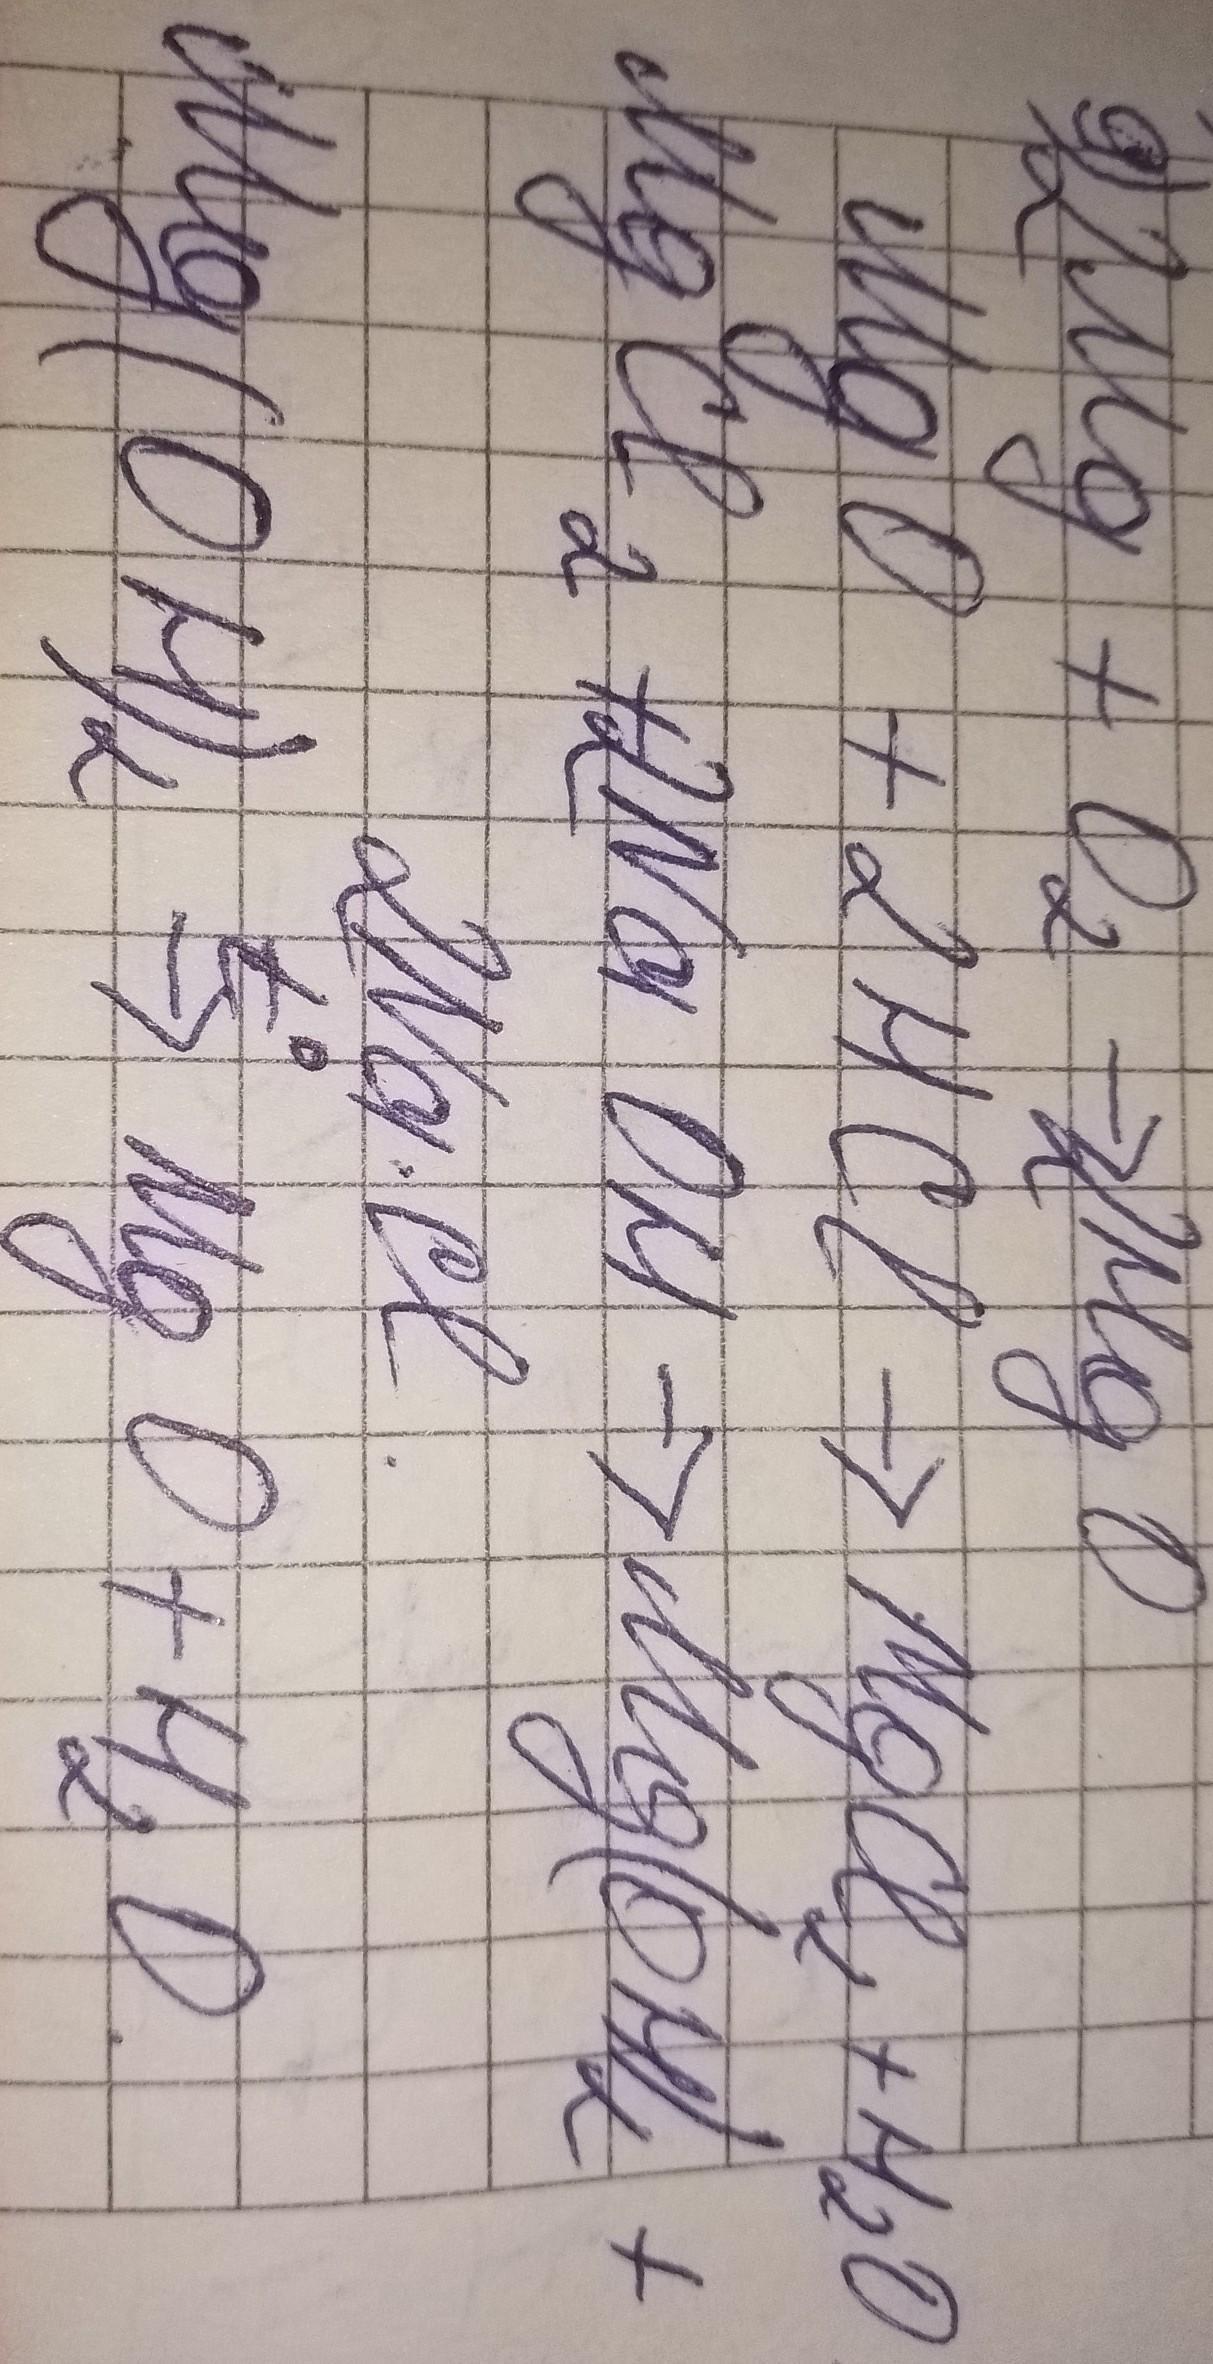 2Mg + O₂ → 2MgO
MgO + 2HCl → MgCl₂ + H₂O
MgCl₂ + 2NaOH → Mg(OH)₂ +
2NaCl.
Mg(OH)₂ t° → MgO + H₂O